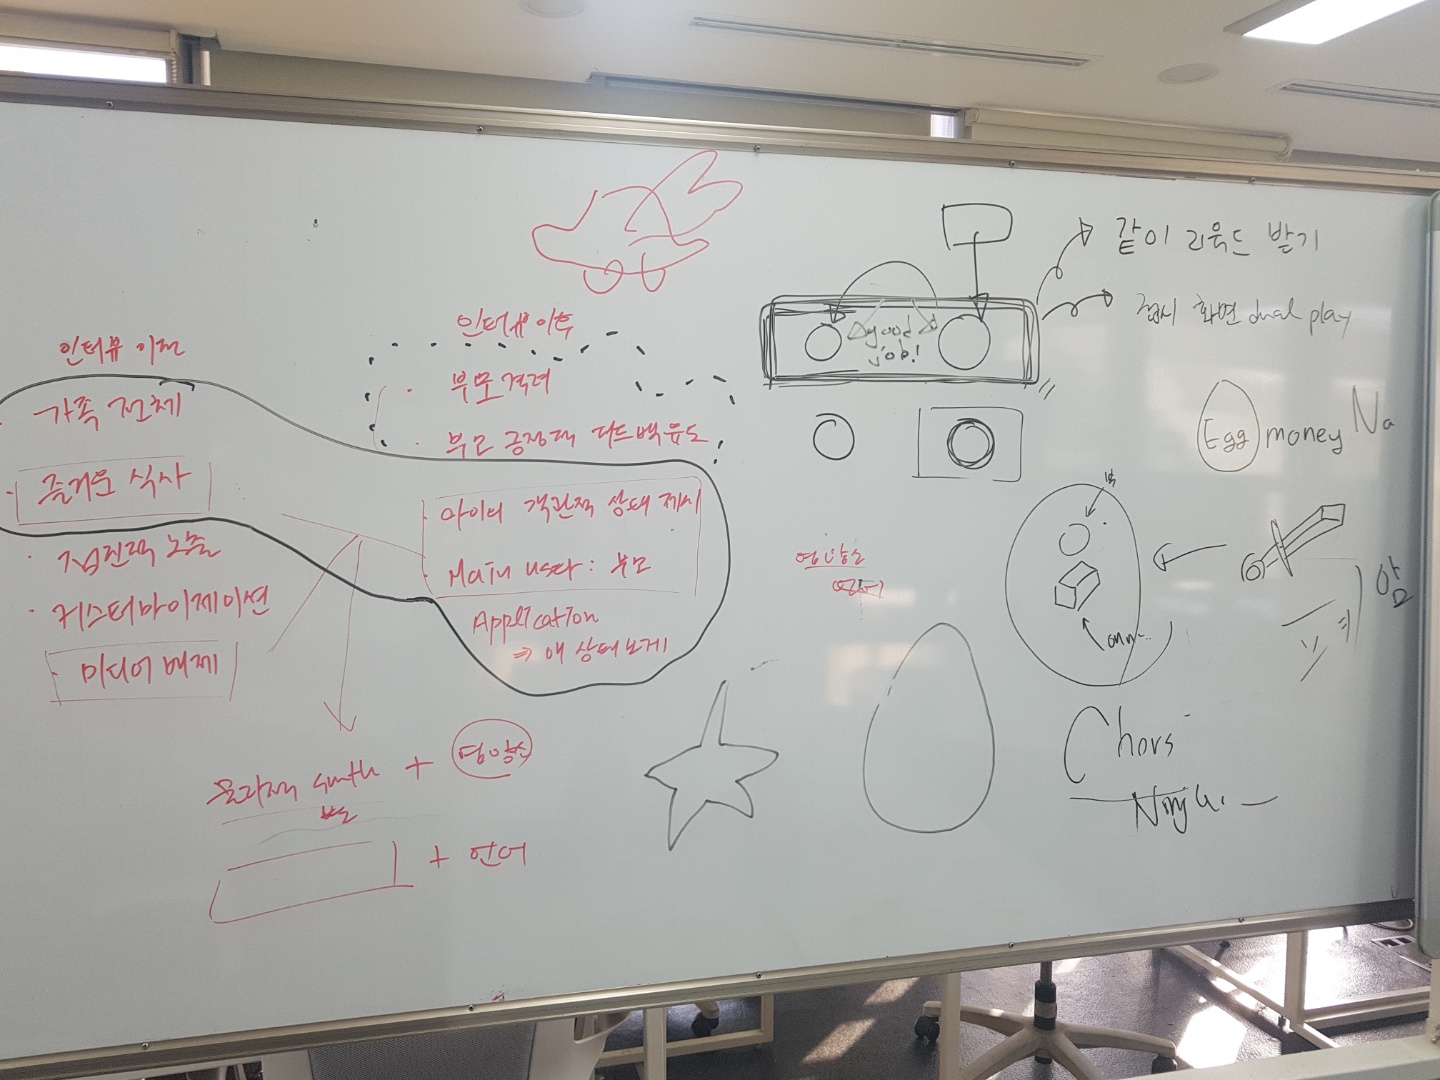 인터뷰 이전
가족 전체
즐거운 식사
점진적 노출
커스터마이제이션
미디어 배제
인터뷰 이후
부모 격려
부모 긍정적 피드백 유도
아이의 객관적 상태 제시
Main user: 부모
Application
⇒ 애 상태 보게
물리적
+ 영양소
+ 언어
good job!
같이 리워드 받기
접시 화면 dual play
Egg money Na
영양소